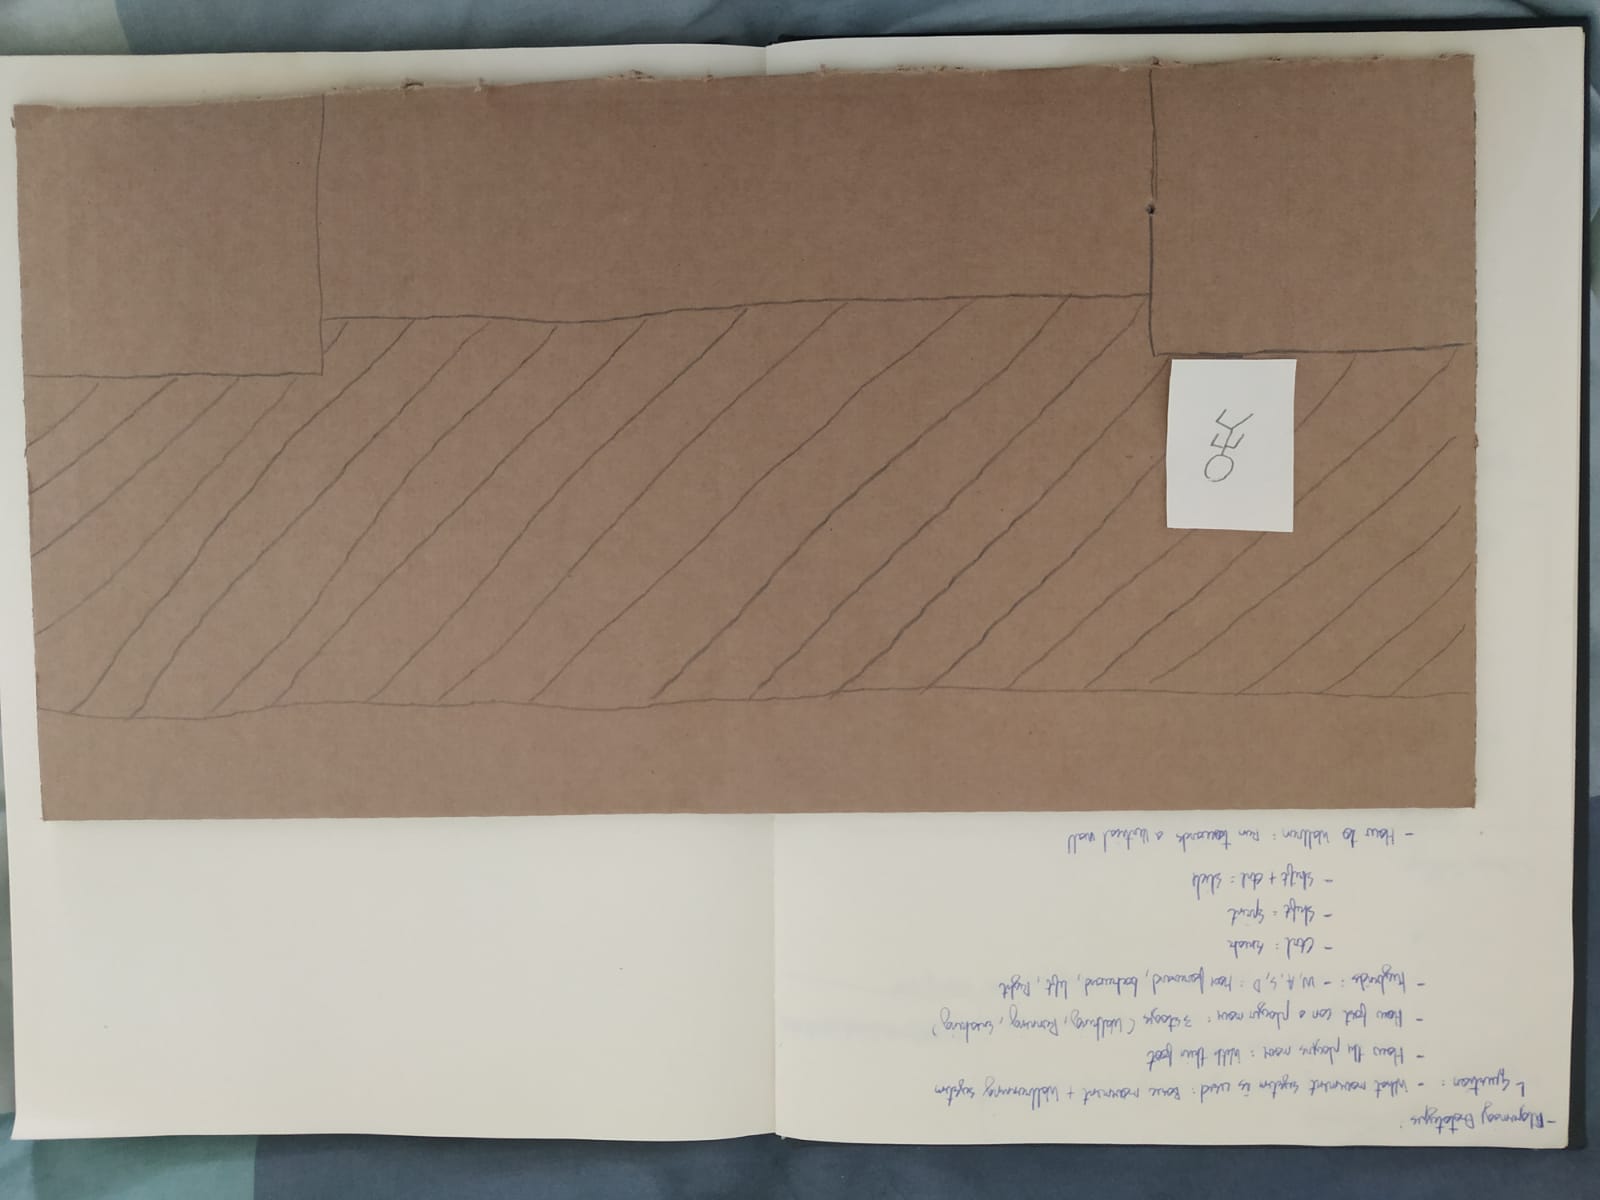 - Prototypes:
└ Question: - What movement system is used: Basic movement + Wallrunning system
- How the players move: With their foot
- How fast can a player move: 3 stages (Walking, Running, Sneaking)
- Keybinds: - W, A, S, D: Move forward, backward, left, Right
- Ctrl: Sneak
- Shift = Sprint
- Shift + Ctrl = Slide
- How to Wallrun: Run towards a Vertical wall